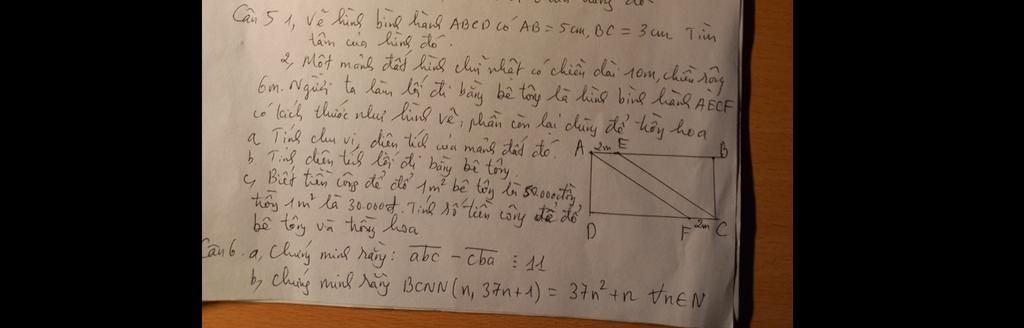 Câu 5 1, Vẽ hình bình hành ABCD có AB = 5cm, BC = 3cm Tìm
tâm của hình đó.
2, Một mảnh đất hình chữ nhật có chiều dài 10m, chiều rộng
6m. Người ta làm lối đi bằng bê tông là hình bình hành AECF
có kích thước như hình vẽ, phần còn lại dùng để trồng hoa
a Tính chu vi, diện tích của mảnh đất đó.
b Tính diện tích lối đi bằng bê tông.
c, Biết tiền công để đổ 1m² bê tông là 50.000đồng,
trồng 1m² là 30.000đ. Tính số tiền công để đổ
bê tông và trồng hoa
A 2m E B
D F 2m C
Câu 6. a, Chứng minh rằng: abc̅ - cba̅ ⋮ 11
b, Chứng minh rằng BCNN (n, 37n+1) = 37n² + n ∀n∈N